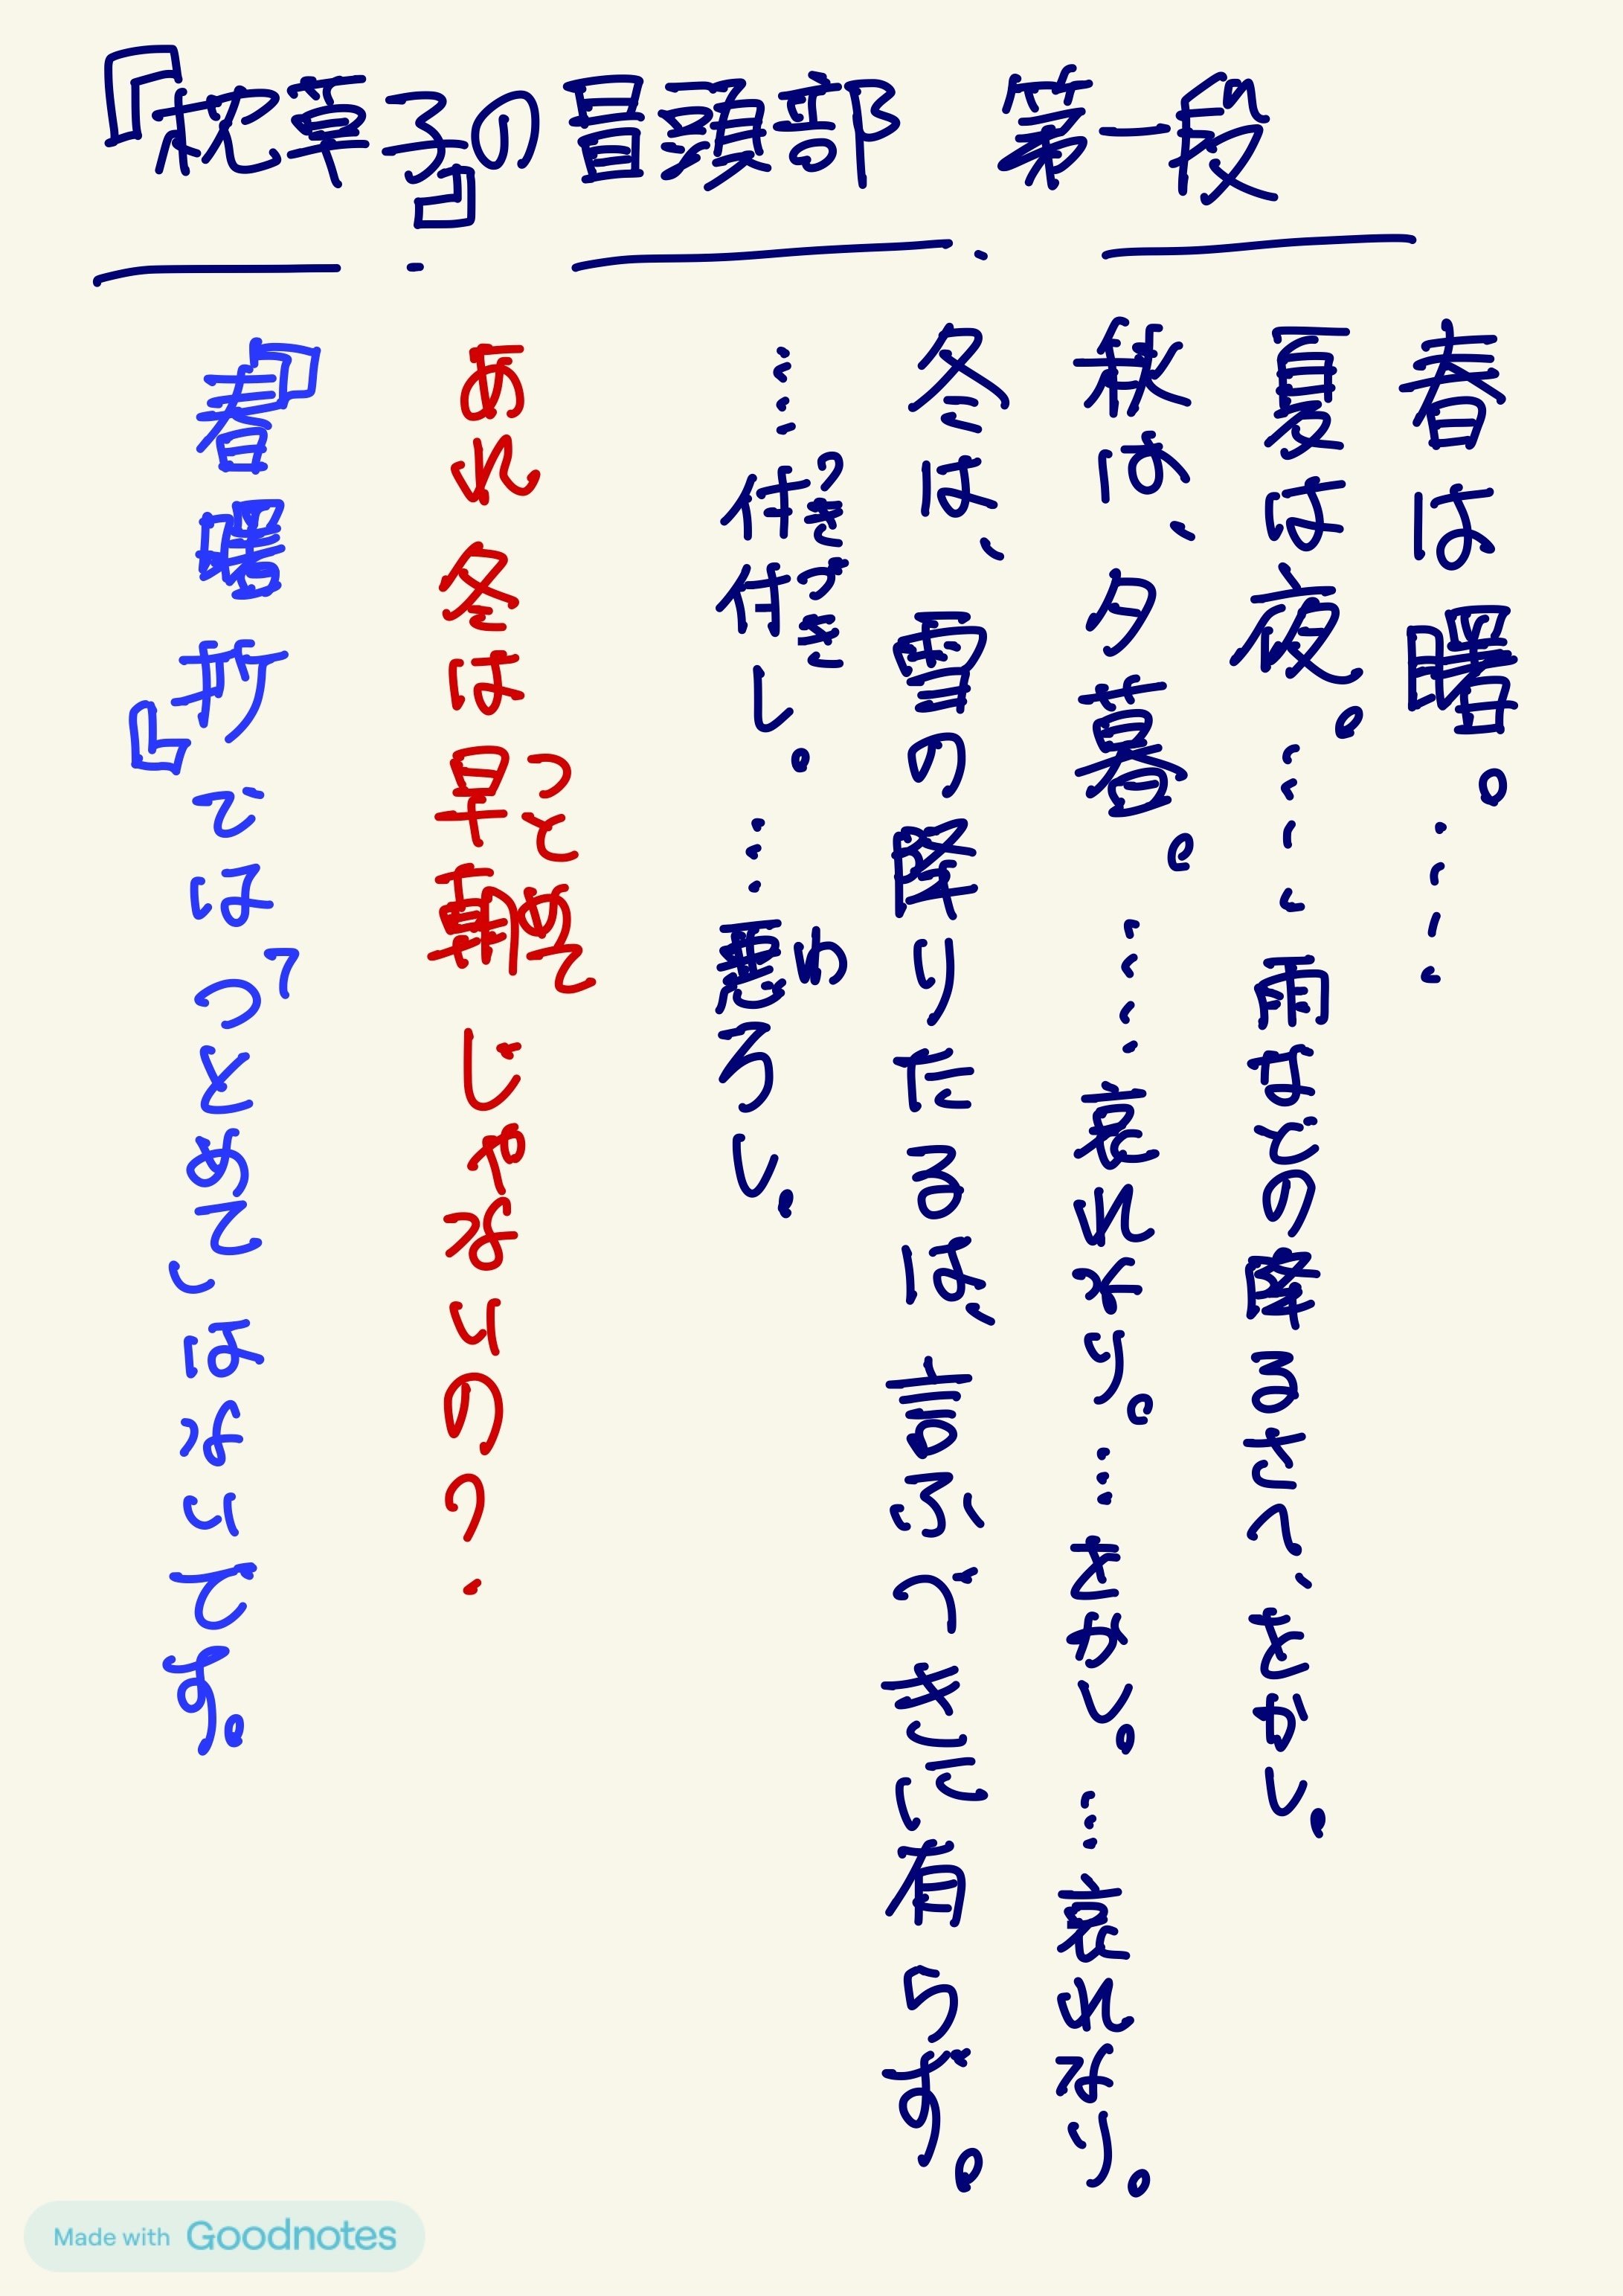 『枕草子』の冒頭部 第一段
春は曙。……
夏は夜。……雨などの降るさへ、をかし。
秋は、夕暮。……哀れなり。…をかし。…哀れなり。
冬は、雪の降りたるは、言ふべきに有らず。
……付付し。…悪ろし。
つきづき
わ
あれ冬は早朝じゃないの?
つとめて
『春曙抄』では「つとめて」はないです。
Made with Goodnotes